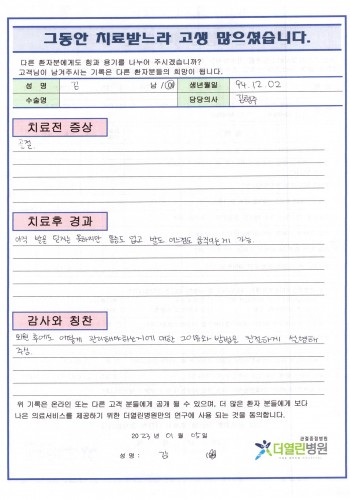 그동안 치료받느라 고생 많으셨습니다.
다른 환자분에게도 힘과 용기를 나누어 주시겠습니까?
고객님이 남겨주시는 기록은 다른 환자분들의 희망이 됩니다.
성 명 김 남 / 여 생년월일 94.12.02
수술명 담당의사 김형주
치료전 증상
골절
치료후 경과
아직 발을 딛지는 못하지만 통증도 없고 발도 어느정도 움직이는게 가능.
감사와 칭찬
퇴원 후에도 어떻게 관리해야하는지에 대한 과 방법을 친절하게 설명해
주심.
위 기록은 온라인 또는 다른 고객 분들에게 공개 될 수 있으며, 더 많은 환자 분들에게 보다
나은 의료서비스를 제공하기 위한 더열린병원만의 연구에 사용 되는 것을 동의합니다.
2023 년 01 월 05 일
성 명 : 김
관절중점병원
더열린병원